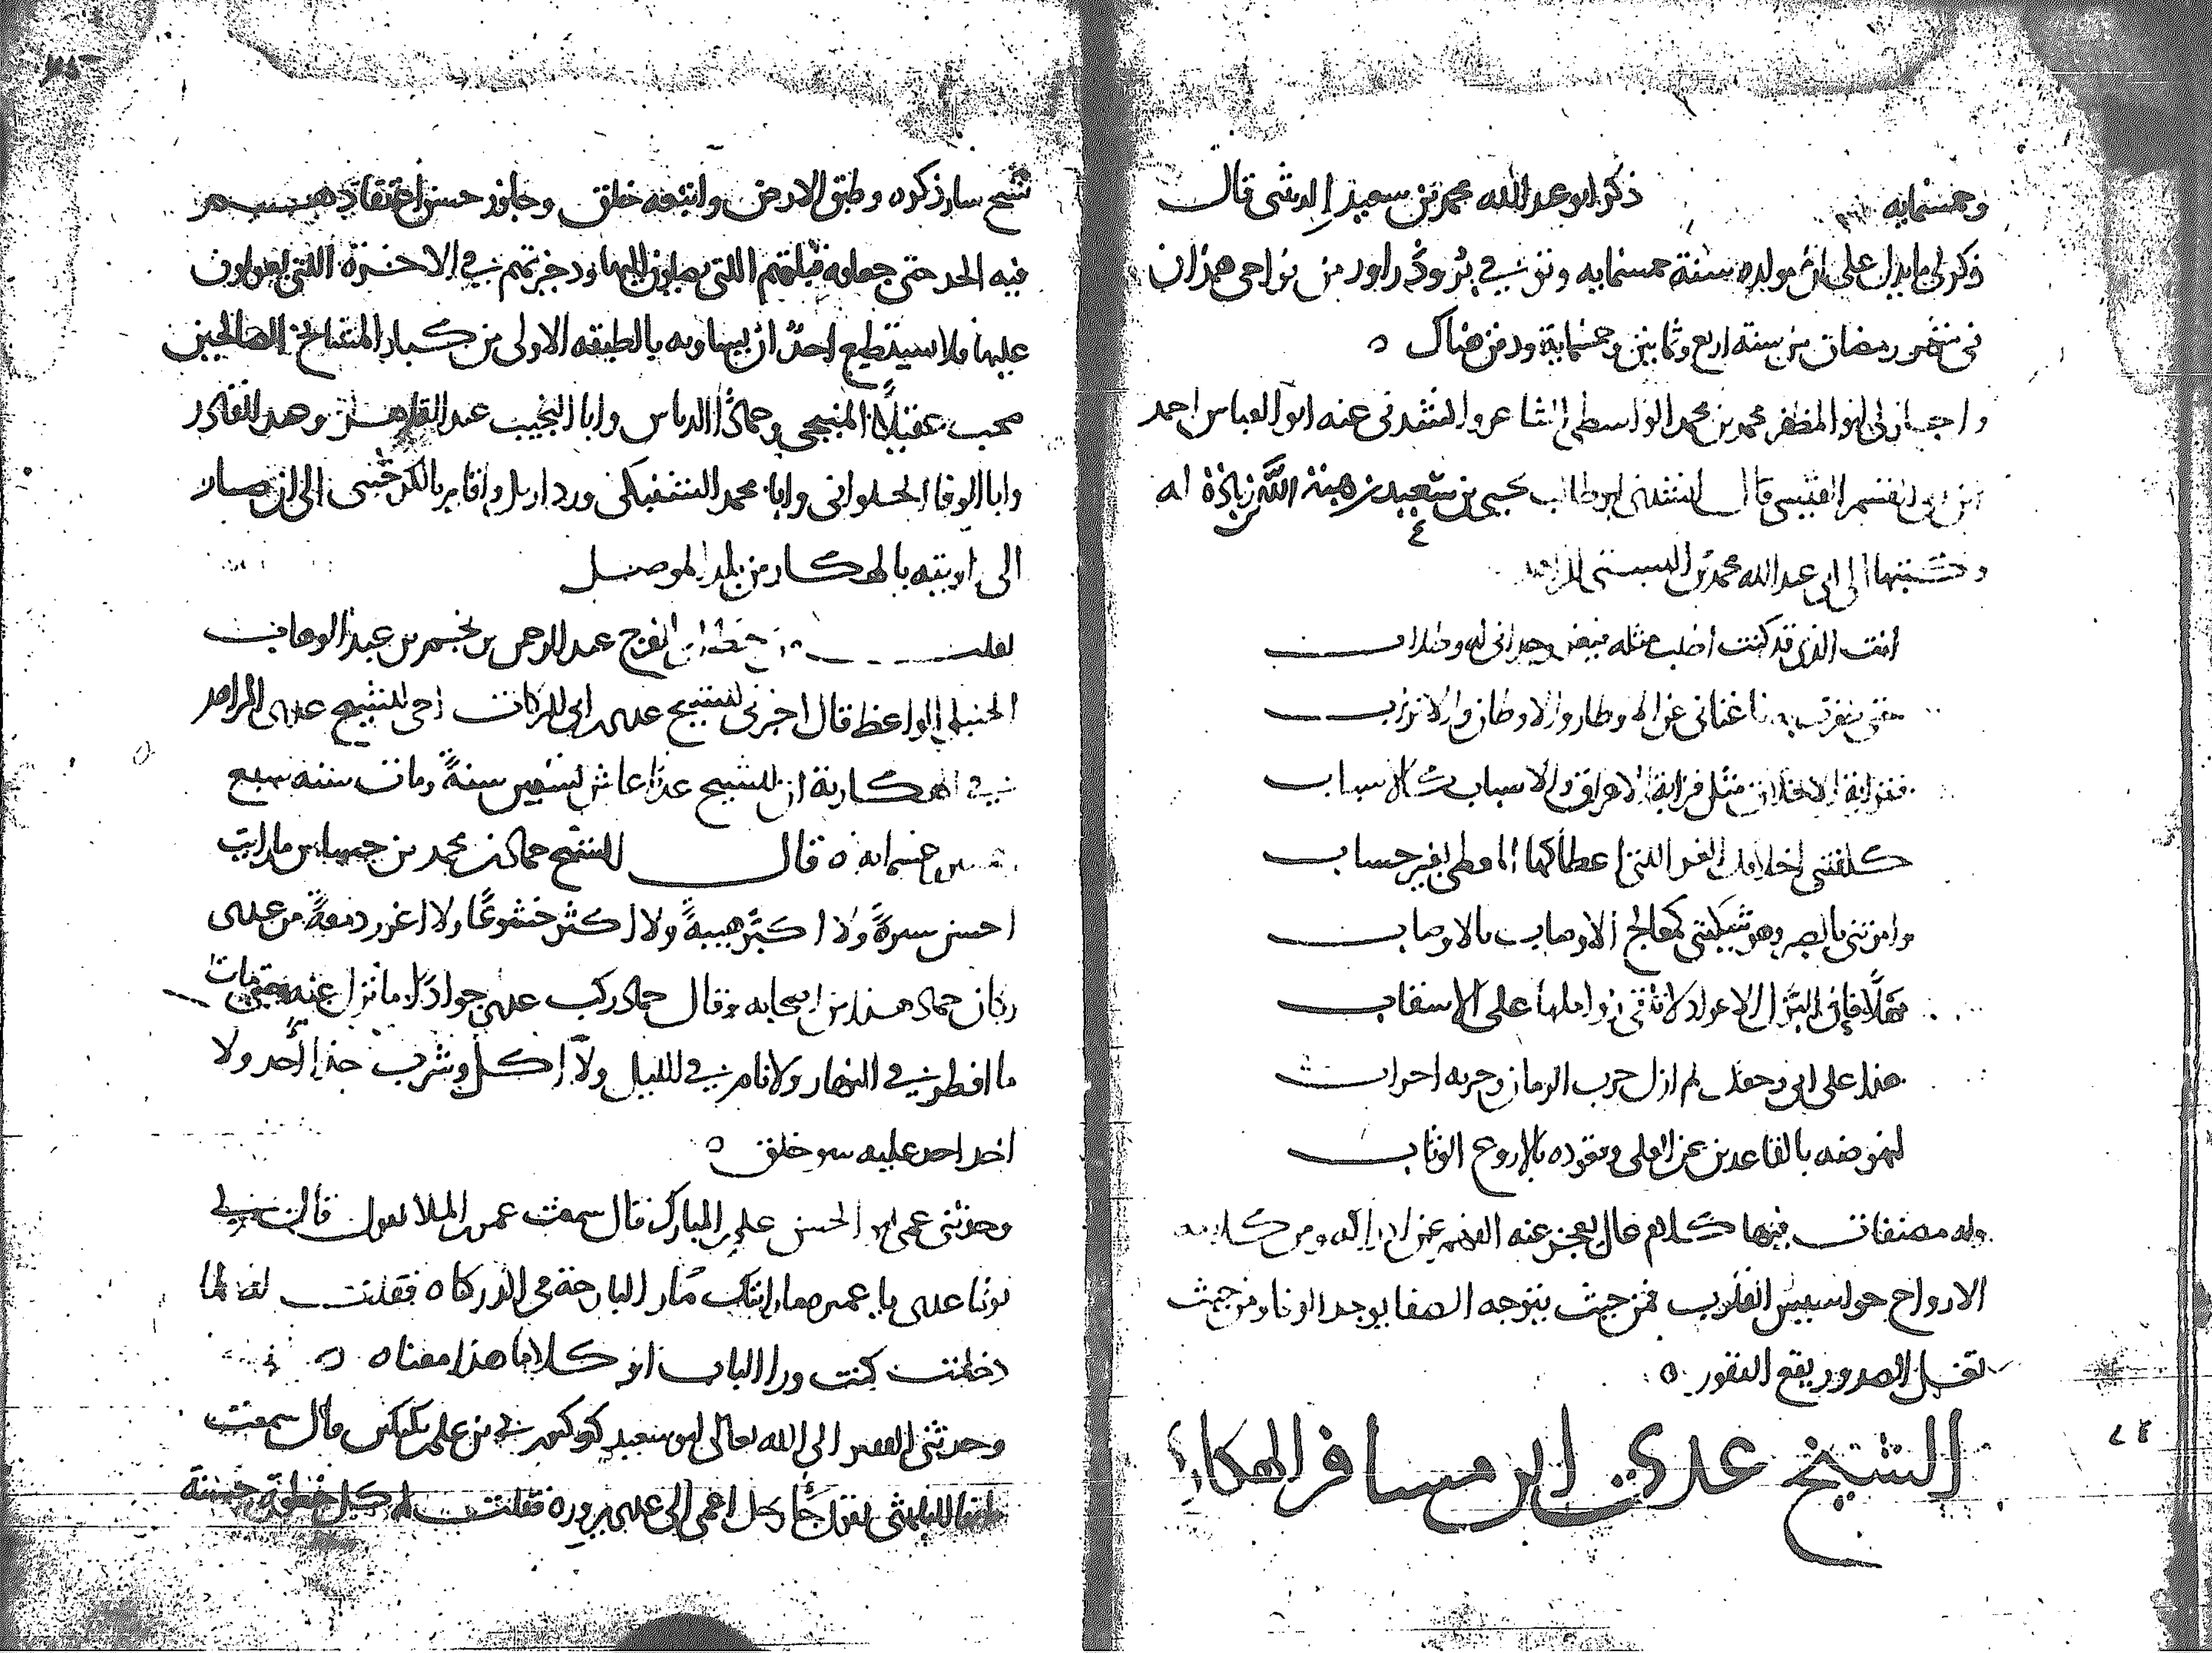 وخمسمايه ذكر ابو عبد الله محمد بن سعيد الدبيثي قال
ذكر لي ما يدل على ان مولده سنة خمسمايه وتوفي في بروذراور من نواحي همذان
في شهر رمضان من سنة اربع وثمانين وخمسماية ودفن هناك ه
واجاز لي ابو المظفر محمد بن محمد الواسطي الشاعر وانشدني عنه ابو العباس احمد
القيسي قال انشدني ابو طالب يحيى بن سعيد بن هبة الله بن زيادة له
وكتبتها الى ابي عبد الله محمد بن البستي الزاهد
انت الذي قد كنت اطلب مثله
عن الاوطار والاوطان والاتراب
فقرابة الاخلاق مثل قرابة الاعراق والاسباب كالاسباب
كلفتني اخلاقك الغر التي اعطاكها المعطي بغير حساب
وامرتني بالصبر وهو شكيتي كمعالج الاوصاب بالاوصاب
مهلا فان البزل الاعواد لا على الاسقاب
هذا على اني وحقك لم ازل حرب الزمان وحربه احرابي
لنهوضه بالقاعدين عن العلى وقعوده بالاروع الوثاب
وله مصنفات فيها كلام عال يعجز عنه الفهم عن ادراكه ومن كلامه
الارواح جواسيس القلوب فمن حيث يتوجه الصفا يوجد الوفا ومن حيث
نغل الصدور يقع النفور ه
الشيخ عدي ابن مسافر الهكاري
شيخ سار ذكره وطبق الارض واتبعه خلق وجاوز حسن اعتقادهم
فيه الحد حتى جعلوه قبلتهم التي يصلون اليها وذخيرتهم في الاخرة التي يعولون
عليها فلا يستطيع احد ان بالطبقه الاولى من كبار المشايخ الصالحين
صحب عقيلا المنبجي وحمادا الدباس وابا النجيب عبد القاهر وعبد القادر
وابا الوفا الحلواني وابا محمد الشنبكي وورد اربل واقام بالكرخيني الى ان صار
الى زاويته بالهكار من بلد الموصل
نقلت من خط ابي الفرج عبد الرحمن بن نجم بن عبد الوهاب
الحنبلي الواعظ قال اخبرني الشيخ عدي بن ابي البركات اخي الشيخ عدي الزاهد
في الهكارية ان الشيخ عديا عاش تسعين سنة ومات سنه سبع
وخمسين وخمسمايه ه قال الشيخ حماد بن محمد بن جساس ما رايت
احسن سيرة ولا اكبر هيبة ولا اكثر خشوعا ولا اغزر دمعة من عدي
وكان حماد هذا من اصحابه وقال حماد ركب عدي جوادا ما نزل عنه حتى مات
ما افطر في النهار ولا نام في الليل ولا اكل وشرب حذا احد ولا
اخذ احد عليه سو خلق ه
وحدثني عمي ابو الحسن علي بن المبارك قال سمعت عمر الملا يقول قال لي
يوما عدي يا عمر ما رايتك البارحة في الدركاه فقلت
دخلت كنت ورا الباب او كلاما هذا معناه ه
وحدثني الفقير الى الله تعالى ابو سعيد كوكبوري بن علي بن بكتكين قال سمعت
يقول جا رجل اعمى الى عدي يزوره فقلت له كل خطوة حسنة